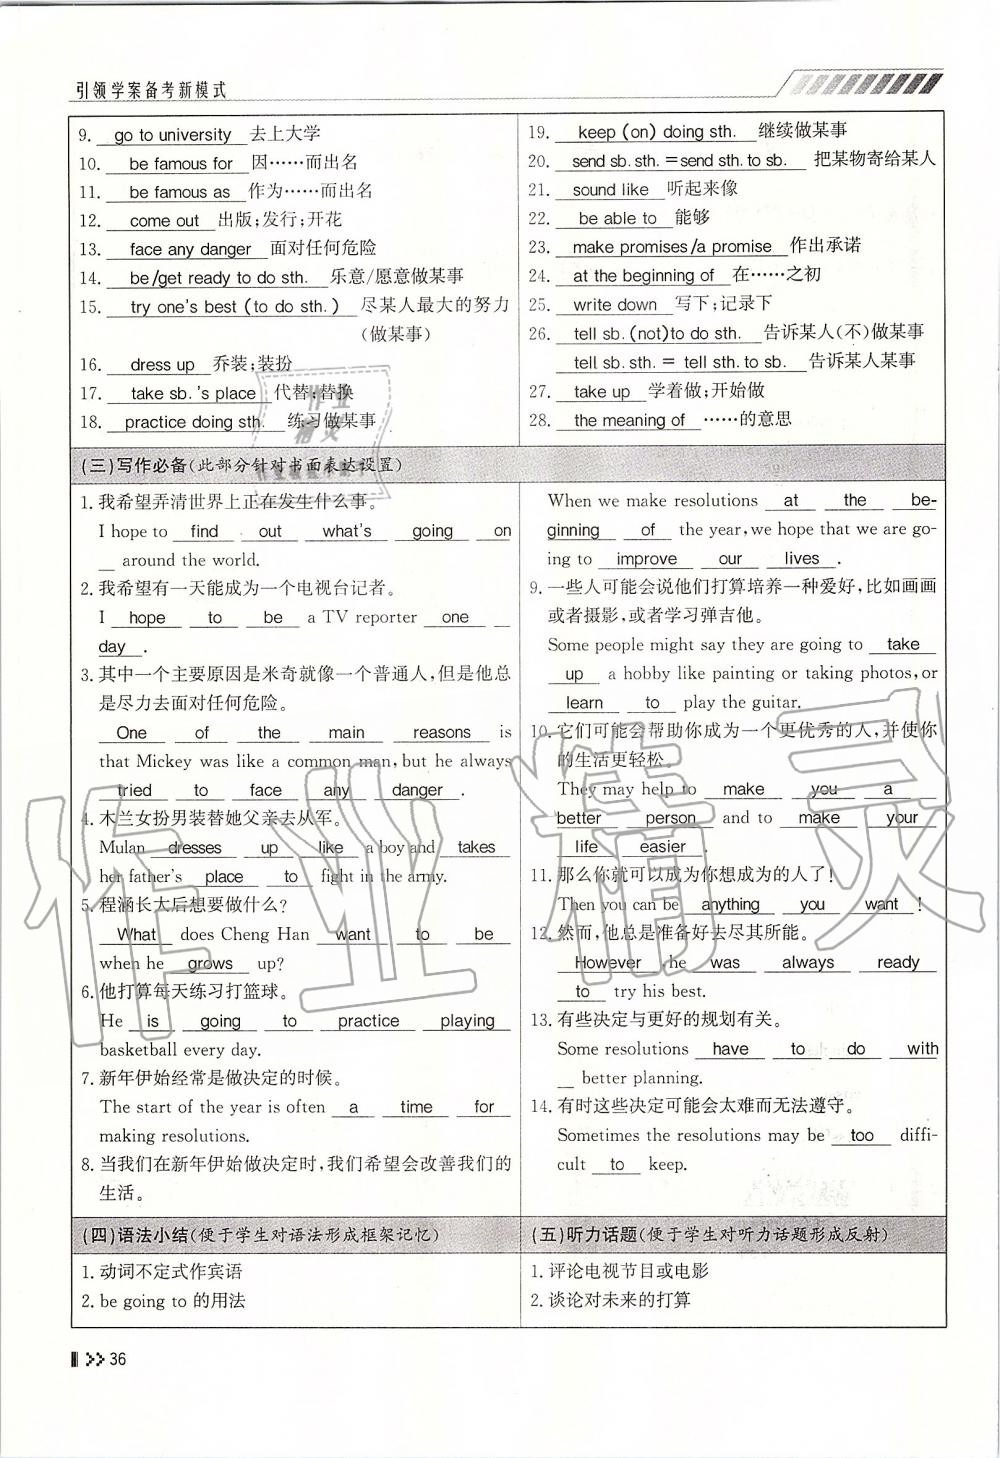 引领学案备考新模式
9. go to university 去上大学
10. be famous for 因……而出名
11. be famous as 作为……而出名
12. come out 出版;发行;开花
13. face any danger 面对任何危险
14. be/get ready to do sth. 乐意/愿意做某事
15. try one's best (to do sth.) 尽某人最大的努力
(做某事)
16. dress up 乔装;装扮
17. take sb.'s place 代替;替换
18. practice doing sth. 练习做某事
19. keep (on) doing sth. 继续做某事
20. send sb. sth. =send sth. to sb. 把某物寄给某人
21. sound like 听起来像
22. be able to 能够
23. make promises/a promise 作出承诺
24. at the beginning of 在……之初
25. write down 写下;记录下
26. tell sb. (not)to do sth. 告诉某人(不)做某事
tell sb. sth. = tell sth. to sb. 告诉某人某事
27. take up 学着做;开始做
28. the meaning of ……的意思
(三)写作必备(此部分针对书面表达设置)
1. 我希望弄清世界上正在发生什么事。
I hope to find out what's going on
around the world.
2. 我希望有一天能成为一个电视台记者。
I hope to be a TV reporter one
day .
3. 其中一个主要原因是米奇就像一个普通人,但是他总
是尽力去面对任何危险。
One of the main reasons is
that Mickey was like a common man, but he always
tried to face any danger .
4. 木兰女扮男装替她父亲去从军。
Mulan dresses up like a boy and takes
her father's place to fight in the army.
5. 程涵长大后想要做什么?
What does Cheng Han want to be
when he grows up?
6. 他打算每天练习打篮球。
He is going to practice playing
basketball every day.
7. 新年伊始经常是做决定的时候。
The start of the year is often a time for
making resolutions.
8. 当我们在新年伊始做决定时,我们希望会改善我们的
生活。
When we make resolutions at the be-
ginning of the year, we hope that we are go-
ing to improve our lives .
9. 一些人可能会说他们打算培养一种爱好,比如画画
或者摄影,或者学习弹吉他。
Some people might say they are going to take
up a hobby like painting or taking photos, or
learn to play the guitar.
10. 它们可能会帮助你成为一个更优秀的人,并使你
的生活更轻松。
They may help to make you a
better person and to make your
life easier .
11. 那么你就可以成为你想成为的人了!
Then you can be anything you want !
12. 然而,他总是准备好去尽其所能。
However, he was always ready
to try his best.
13. 有些决定与更好的规划有关。
Some resolutions have to do with
better planning.
14. 有时这些决定可能会太难而无法遵守。
Sometimes the resolutions may be too diffi-
cult to keep.
(四)语法小结(便于学生对语法形成框架记忆)
1. 动词不定式作宾语
2. be going to 的用法
(五)听力话题(便于学生对听力话题形成反射)
1. 评论电视节目或电影
2. 谈论对未来的打算
36
作业精灵